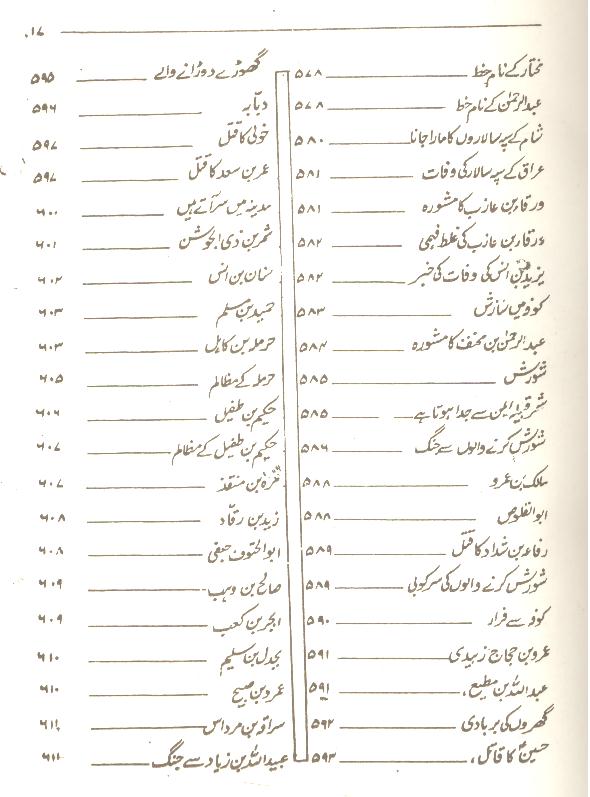 ۱۷
مختار کے نام خط ۵۷۸
عبدالرحمٰن کے نام خط ۵۷۸
شام کے سپہ سالاروں کا مارا جانا ۵۸۰
عراق کے سپہ سالار کی وفات ۵۸۱
ورقاء بن عازب کا مشورہ ۵۸۱
ورقاء بن عازب کی غلط فہمی ۵۸۲
یزید بن انس کی وفات کی خبر ۵۸۲
کوفہ میں سازش ۵۸۳
عبدالرحمٰن بن مخنف کا مشورہ ۵۸۴
شورش ۵۸۵
سے جدا ہوتا ہے ۵۸۵
شورش کرنے والوں سے جنگ ۵۸۶
مالک بن عمرو ۵۸۸
ابوالقلوص ۵۸۸
رفاعہ بن شداد کا قتل ۵۸۹
شورش کرنے والوں کی سرکوبی ۵۸۹
کوفہ سے فرار ۵۹۰
عمرو بن حجاج زبیدی ۵۹۱
عبداللہ بن مطیع، ۵۹۱
گھروں کی بربادی ۵۹۲
حسینؑ کا قاتل، ۵۹۳
گھوڑے دوڑانے والے ۵۹۵
دبّابہ ۵۹۶
خولی کا قتل ۵۹۷
عمر بن سعد کا قتل ۵۹۷
مدینہ میں سر آتے ہیں ۶۰۰
شمر بن ذی الجوشن ۶۰۱
سنان بن انس ۶۰۲
حمید بن مسلم ۶۰۳
حرملہ بن کاہل ۶۰۳
حرملہ کے مظالم ۶۰۵
حکیم بن طفیل ۶۰۶
حکیم بن طفیل کے مظالم ۶۰۷
مُرّہ بن منقذ ۶۰۷
زید بن رقّاد ۶۰۸
ابوالحتوف جعفی ۶۰۸
صالح بن وہب ۶۰۹
ابجر بن کعب ۶۰۹
بجدل بن سلیم ۶۱۰
عمرو بن صبیح ۶۱۰
سراقہ بن مرداس ۶۱۱
عبیداللہ بن زیاد سے جنگ ۶۱۱